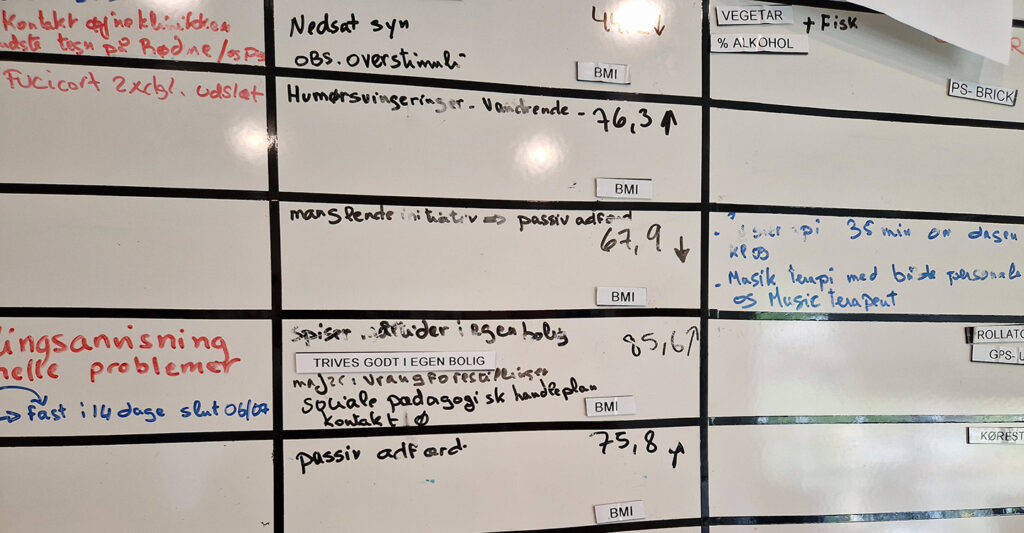 Kontakt
tegn på Rødme
Nedsat syn
OBS. overstimuli
BMI
VEGETAR + Fisk
% ALKOHOL
PS- BRICK
Fucicort 2xdgl. udslæt
Humørsvingeringer - Vandrende - 76,3 ↑
BMI
manglende initiativ => passiv adfærd
67,9 ↓
BMI
35 min om dagen
• Musik terapi med både personale
og Music terapeut
ingsanvisning
nelle problemer
→ Fast i 14 dage slut 06/07
spiser i egen bolig
85,6 ↑
TRIVES GODT I EGEN BOLIG
i vrangforestillinger
sociale pædagogisk handleplan
kontakt Ø
BMI
ROLLATO
GPS-
passiv adfærd
75,8 ↑
BMI
KØREST